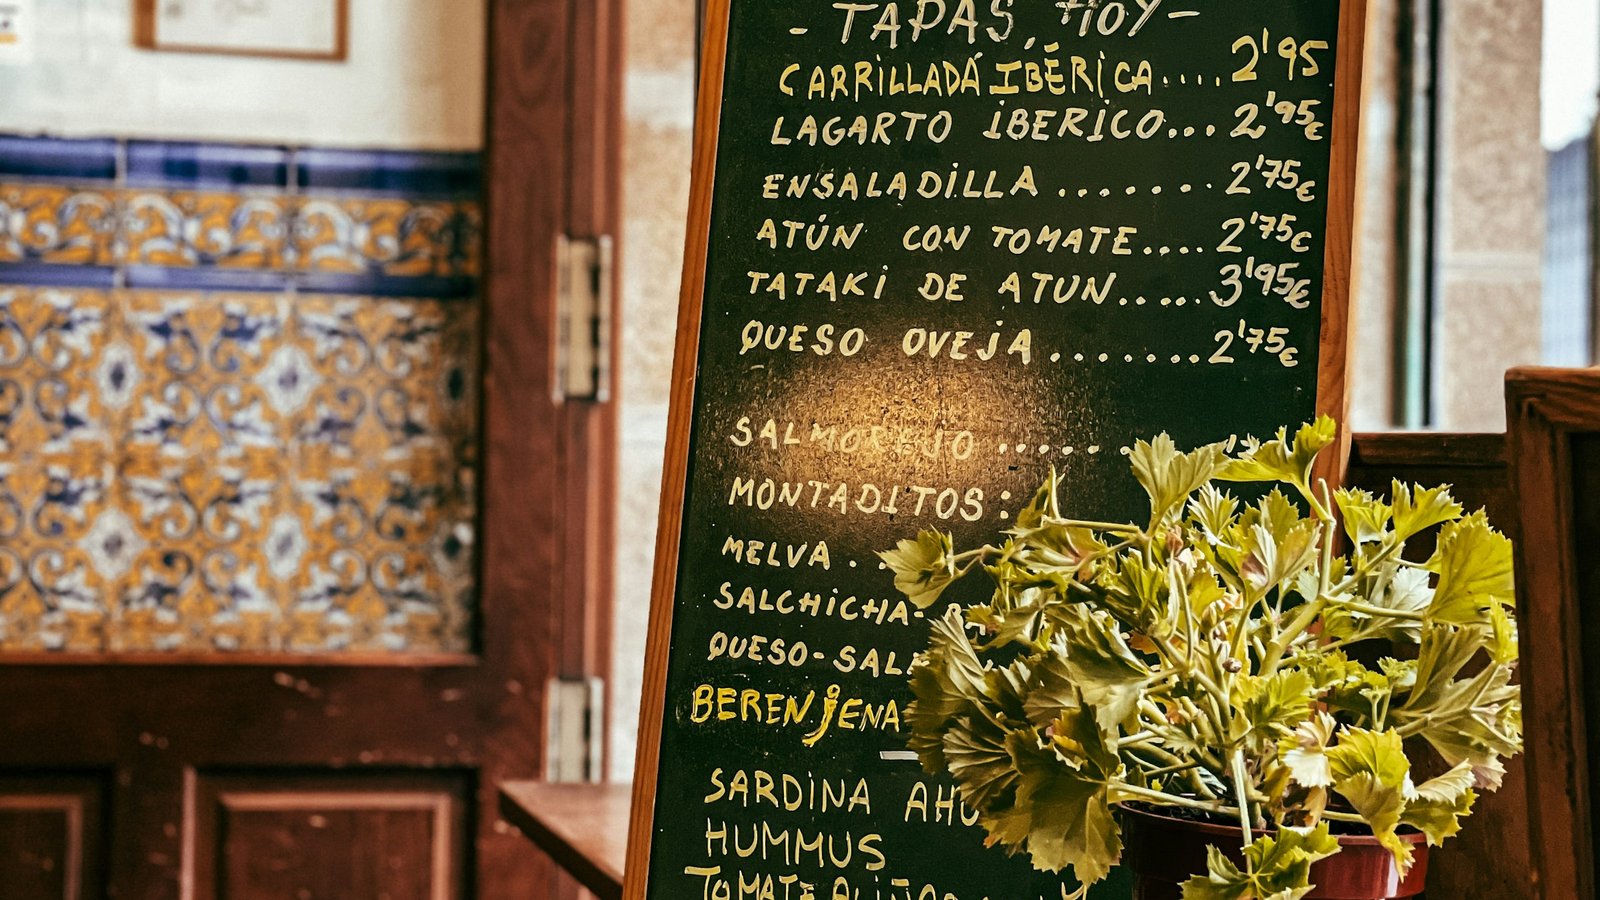 - TAPAS HOY -
CARRILLADÁ IBÉRICA.... 2'95
LAGARTO IBERICO... 2'95€
ENSALADILLA ....... 2'75€
ATÚN CON TOMATE.... 2'75€
TATAKI DE ATUN..... 3'95€
QUESO OVEJA ....... 2'75€
SALMOREJO ......
MONTADITOS:
MELVA ..
SALCHICHA-
QUESO-
BERENJENA
SARDINA
HUMMUS
TOMATE